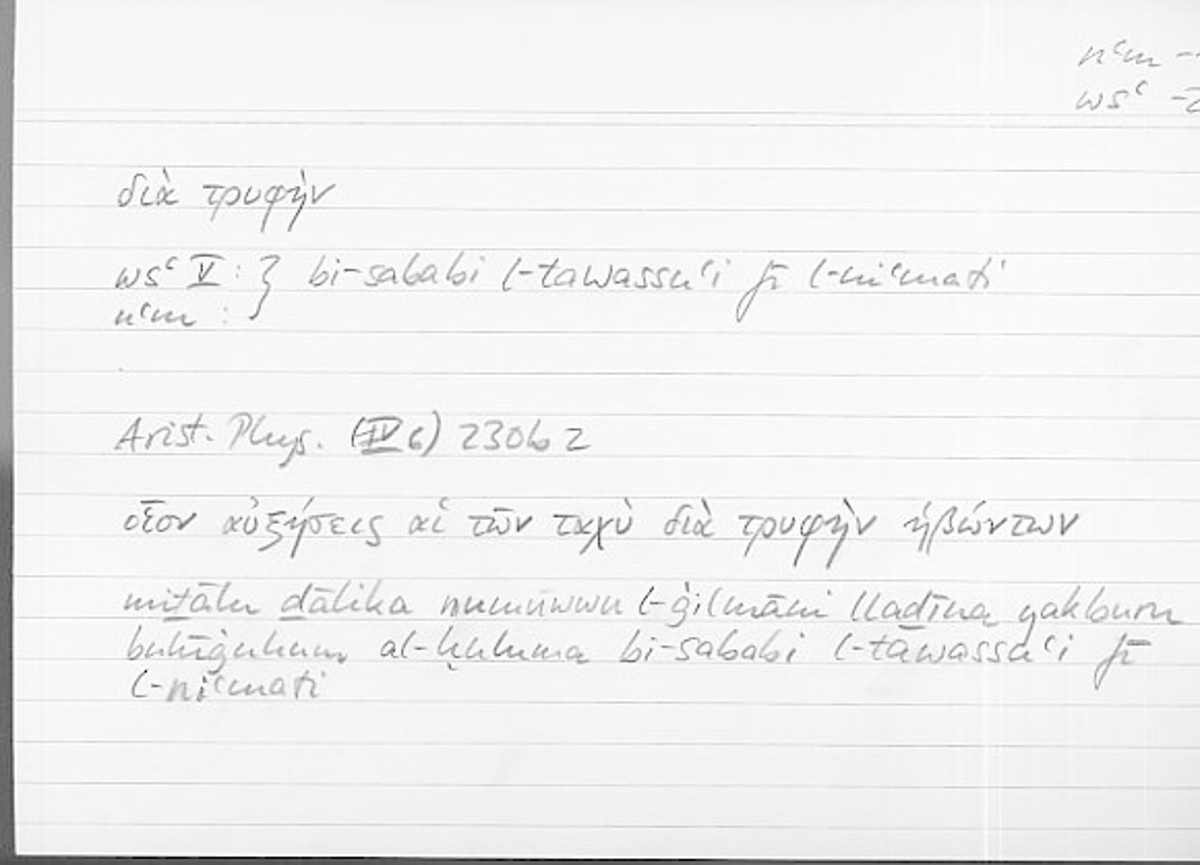 nʿm
wsʿ
διὰ τρυφὴν
wsʿ V : } bi-sababi l-tawassuʿi fī l-niʿmati
nʿm :
Arist. Phys. (IV 6) 230b 2
οἷον αὐξήσεις αἱ τῶν ταχὺ διὰ τρυφὴν ἡβώντων
miṯālu ḏālika numūwwu l-ġilmāni llaḏīna
bulūġuhum al-ḥuluma bi-sababi l-tawassuʿi fī
l-niʿmati